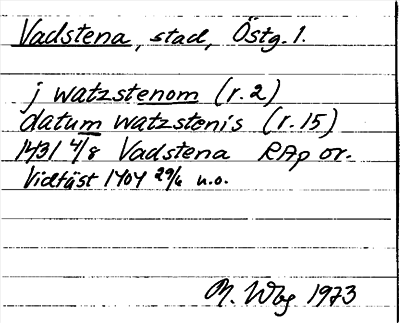 Vadstena, stad, Östg. l.
j watzstenom (r. 2)
datum watzstenis (r. 15)
1431 4/8 Vadstena RAp or.
Vidfäst 1404 29/6 n.o.
M. Wbg 1973